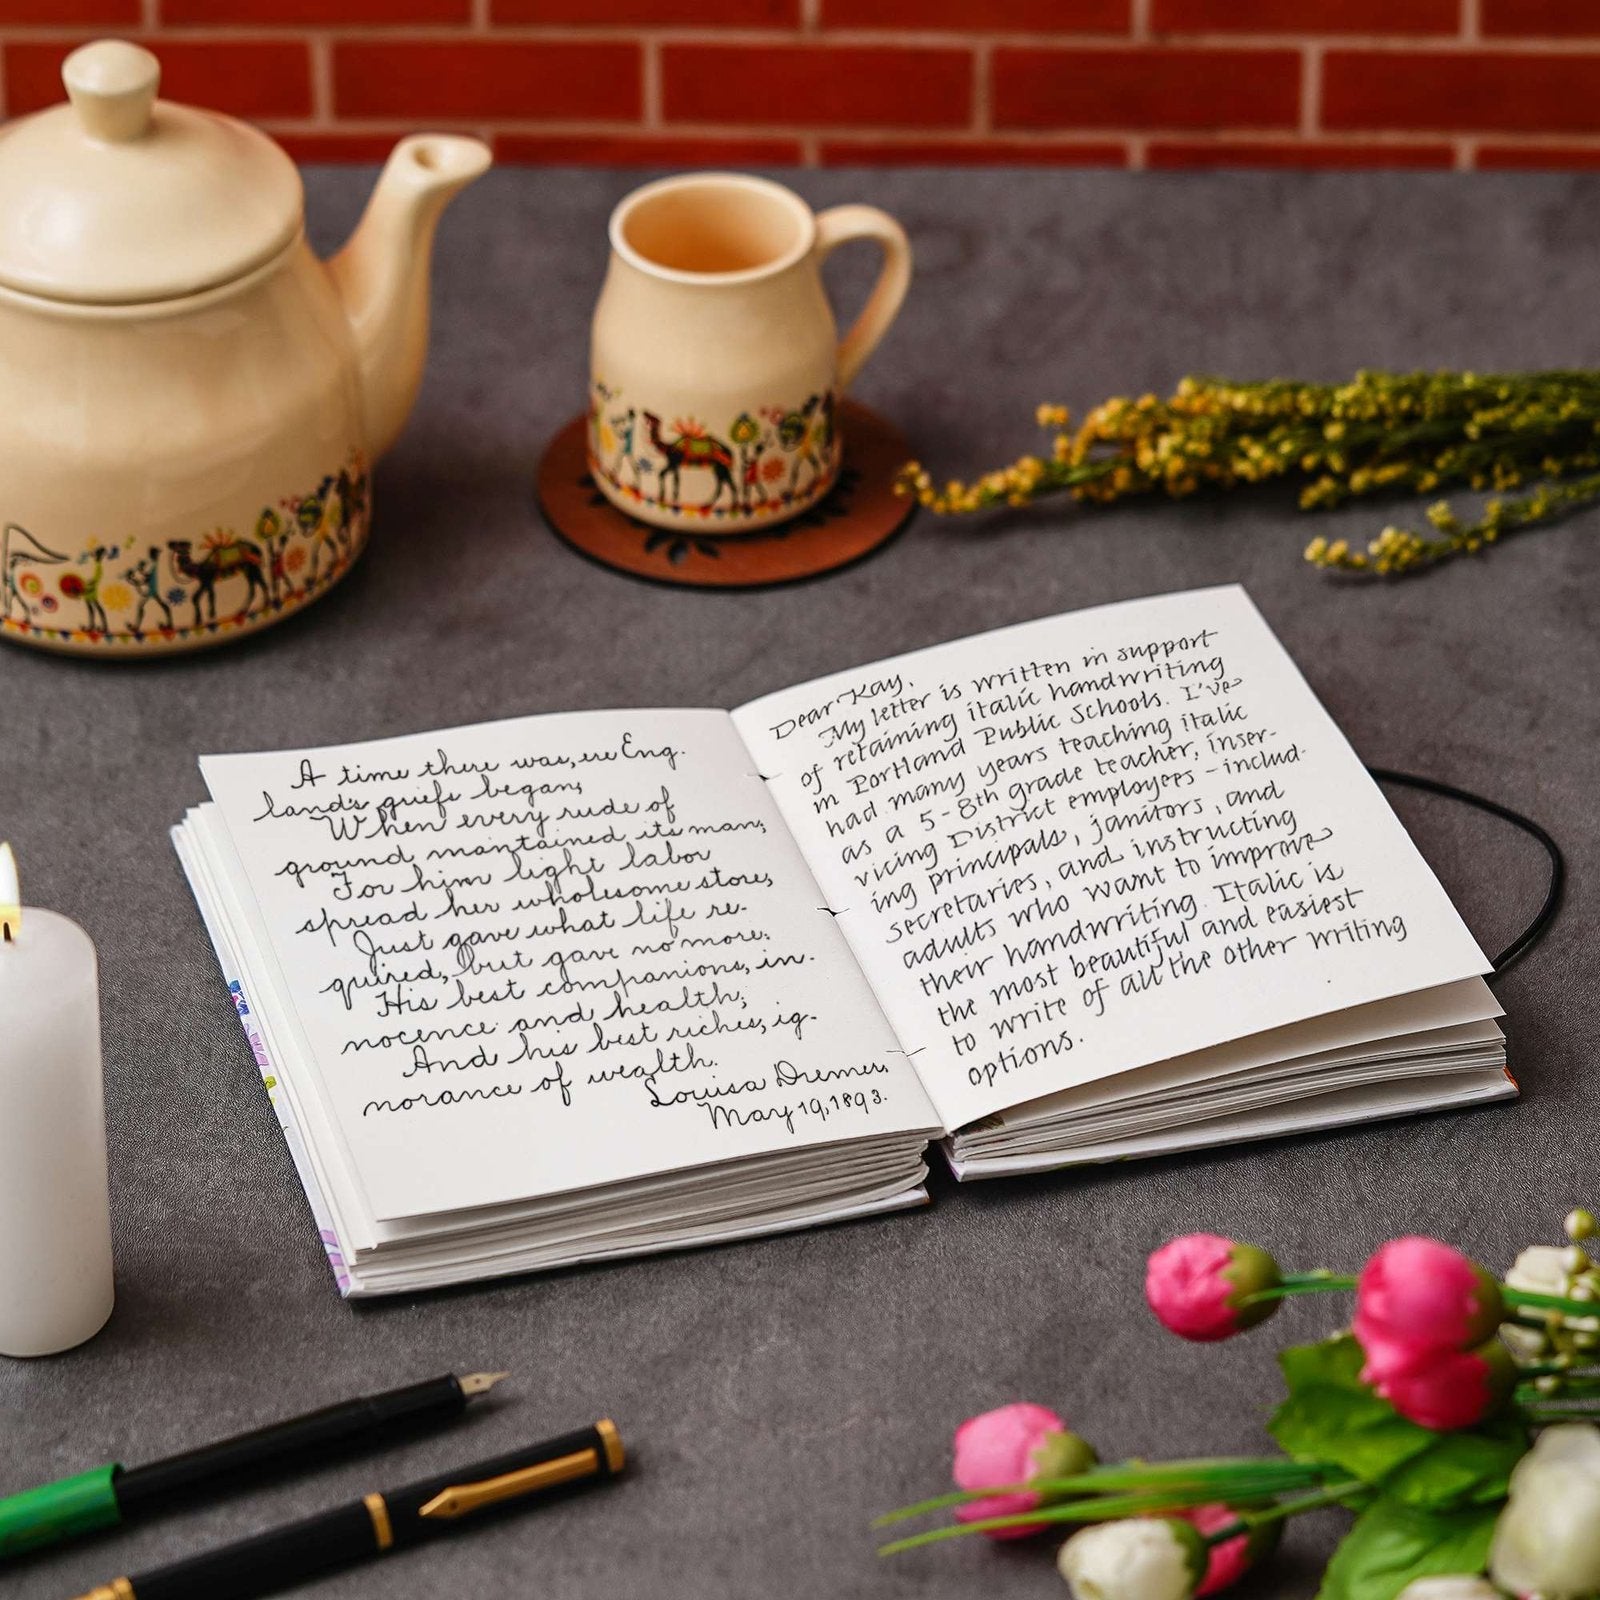 A time there was, ere Eng.
land's griefs began,
When every rude of
ground maintained its man;
For him light labor
spread her wholesome store,
Just gave what life re-
quired, but gave no more:
His best companions, in-
nocence and health;
And his best riches, ig-
norance of wealth.
Louisa Dremer,
May 19, 1893.
Dear Kay,
My letter is written in support
of retaining italic handwriting
in Portland Public Schools. I've
had many years teaching italic
as a 5-8th grade teacher, inser-
vicing District employees - includ-
ing principals, janitors, and
secretaries, and instructing
adults who want to improve
their handwriting. Italic is
the most beautiful and easiest
to write of all the other writing
options.